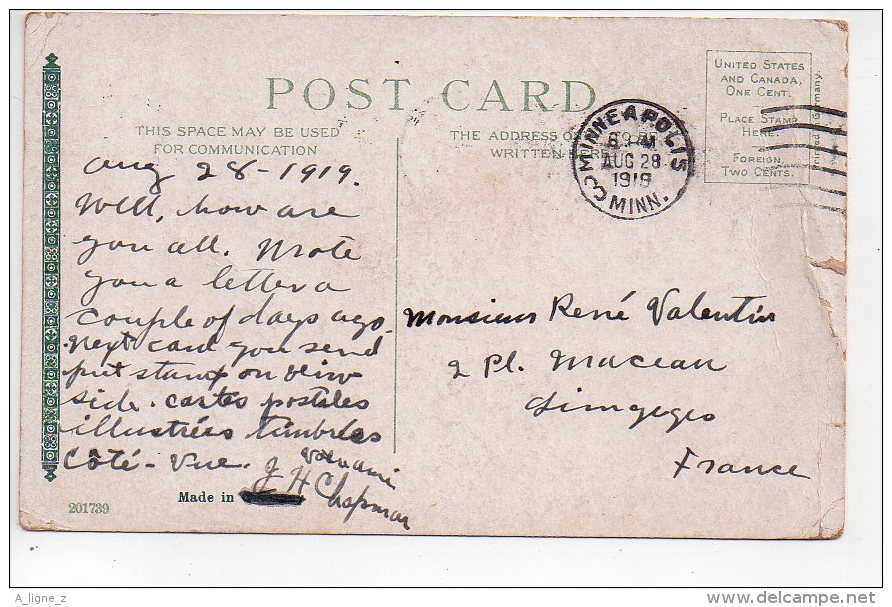 POST CARD
THIS SPACE MAY BE USED
FOR COMMUNICATION
THE ADDRESS
WRITTEN HERE
UNITED STATES
AND CANADA,
ONE CENT.
PLACE STAMP
HERE
FOREIGN,
TWO CENTS.
Printed in Germany.
MINNEAPOLIS
AUG 28
1919
MINN.
Aug 28-1919.
Well, how are
you all. Wrote
you a letter a
couple of days ago.
next card you send
put stamp on view
side. cartes postales
illustrées timbrées
Côté-Vue.
Votre ami
J H Chapman
Monsieur René Valentin
2 Pl. Maceau
Limoges
France
Made in
201739
A_ligne_z
www.delcampe.net